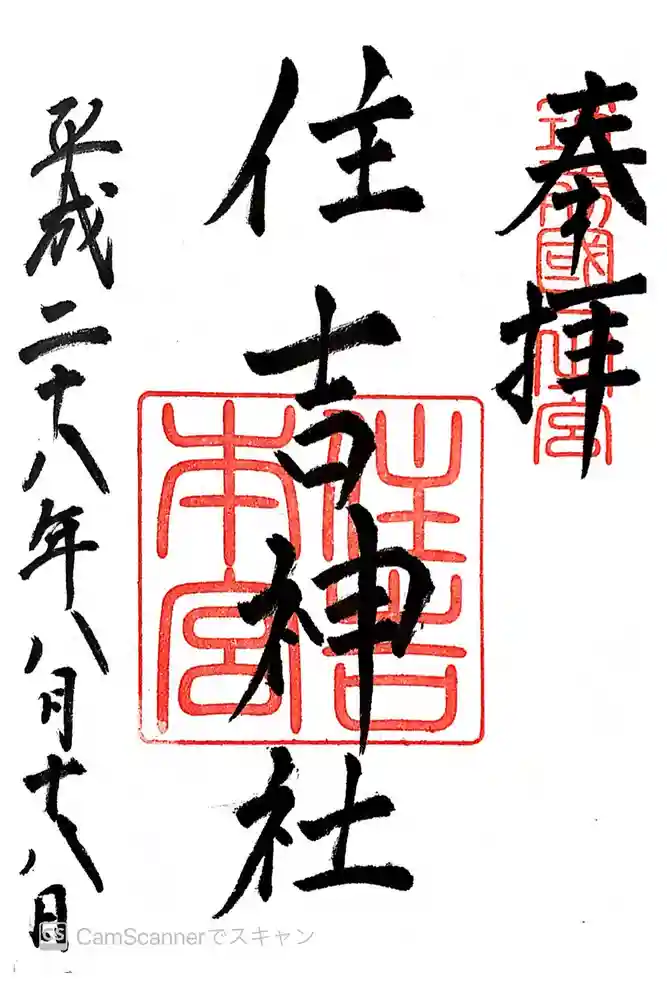 奉拝
住吉神社
住吉本宮
平成二十八年八月十八日
CS CamScannerでスキャン